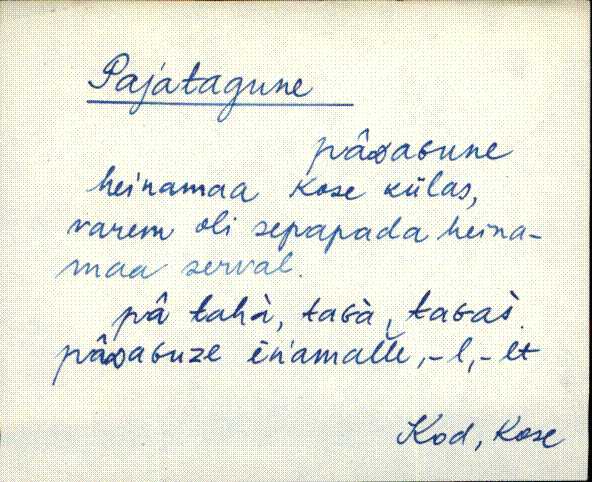 Pajatagune
pâᴅaɢune
heinamaa Kose külas,
varem oli sepapada heina-
maa serval.
pâ tahà, taɢà, taɢaš.
pâᴅaɢuze èn'amaĺĺe, -l, -lt
Kod, Kose